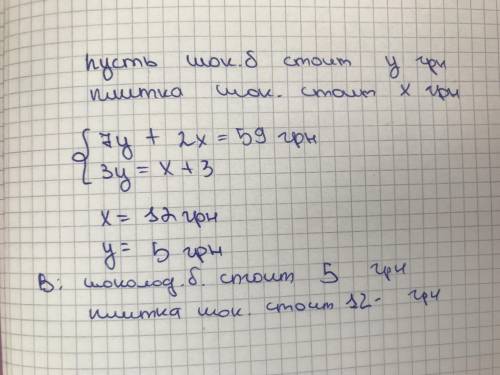 Пусть шок.б стоит у грн
плитка шок. стоит х грн
7у + 2х = 59 грн
3у = х + 3
х = 12 грн
у = 5 грн
В: шоколад.б. стоит 5 грн
плитка шок. стоит 12- грн